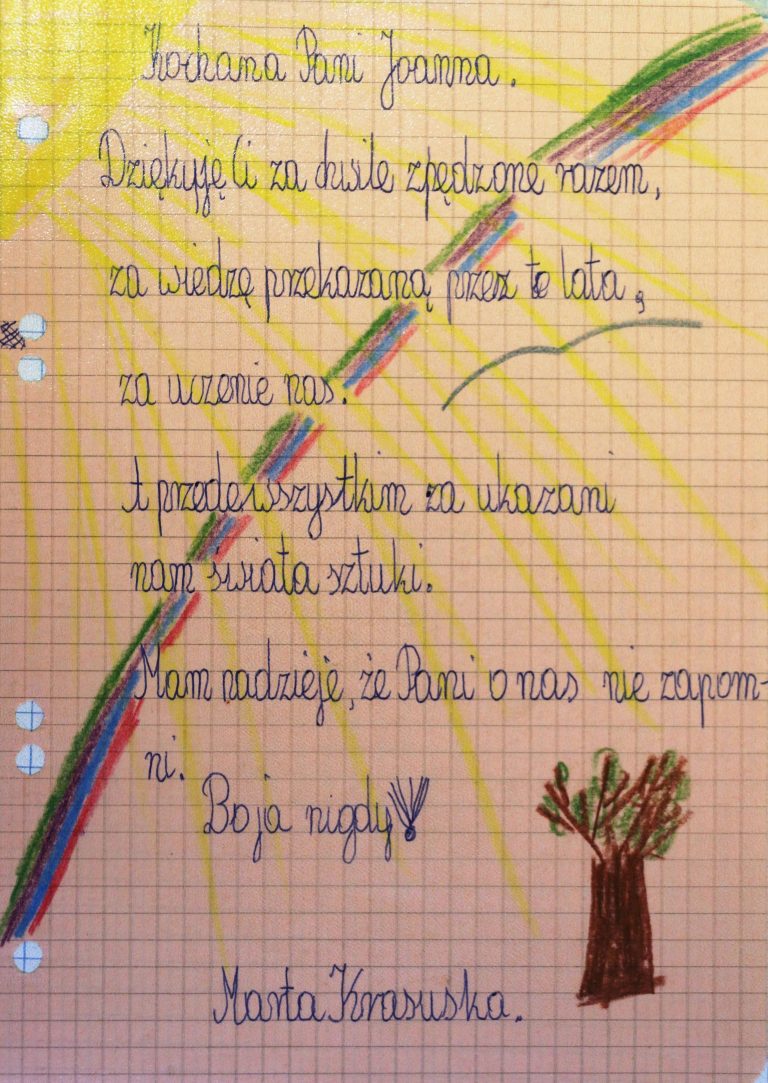 Kochana Pani Joanna.
Dziękuję Ci za chwile zpędzone razem,
za wiedzę przekazaną przez te lata,
za uczenie nas.
A przedewszystkim za ukazani
nam świata sztuki.
Mam nadzieję, że Pani o nas nie zapom-
ni.
Bo ja nigdy!
Marta Krasuska.